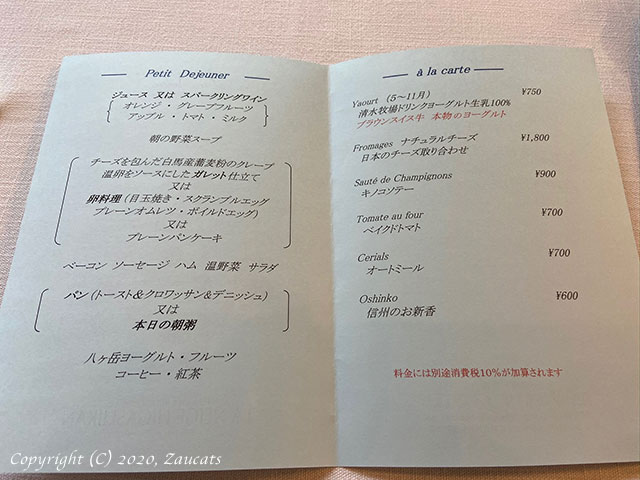 Petit Dejeuner
ジュース 又は スパークリングワイン
オレンジ ・ グレープフルーツ
アップル ・ トマト ・ ミルク
朝の野菜スープ
チーズを包んだ白馬産蕎麦粉のクレープ
温卵をソースにしたガレット仕立て
又は
卵料理 (目玉焼き・スクランブルエッグ
プレーンオムレツ・ボイルドエッグ)
又は
プレーンパンケーキ
ベーコン ソーセージ ハム 温野菜 サラダ
パン (トースト&クロワッサン&デニッシュ)
又は
本日の朝粥
八ヶ岳ヨーグルト・フルーツ
コーヒー・紅茶
à la carte
Yaourt (5~11月) ¥750
清水牧場ドリンクヨーグルト生乳100%
ブラウンスイス牛 本物のヨーグルト
Fromages ナチュラルチーズ ¥1,800
日本のチーズ取り合わせ
Sauté de Champignons ¥900
キノコソテー
Tomate au four ¥700
ベイクドトマト
Cerials ¥700
オートミール
Oshinko ¥600
信州のお新香
料金には別途消費税10%が加算されます
Copyright (C) 2020, Zaucats